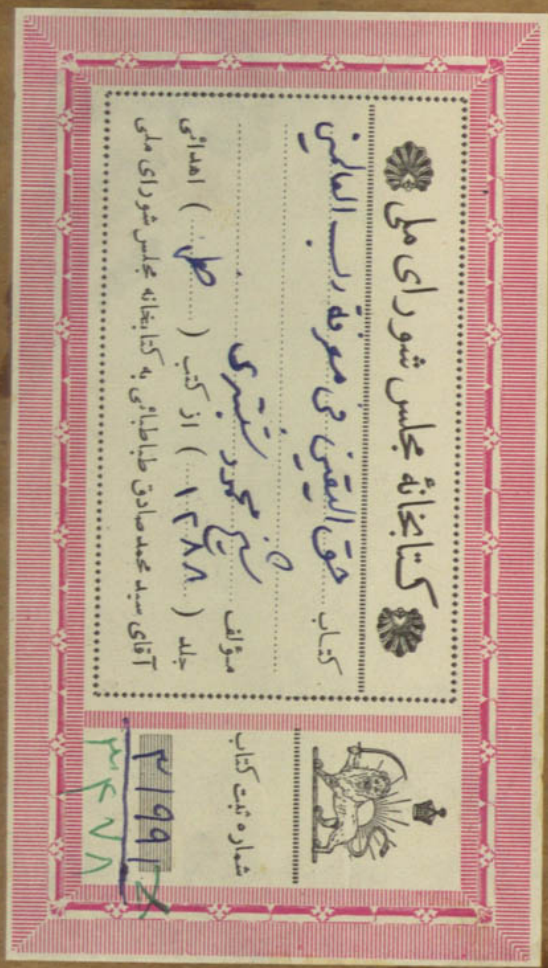 کتابخانهٔ مجلس شورای ملی
کتاب حق الیقین فی معرفة رب العالمین
مؤلف شیخ محمود شبستری
جلد (۱۳۸۸) از کتب ( خطی ) اهدائی
آقای سید محمد صادق طباطبائی به کتابخانه مجلس شورای ملی
شماره ثبت کتاب
۳۱۹۹۲
۳۴۷۸